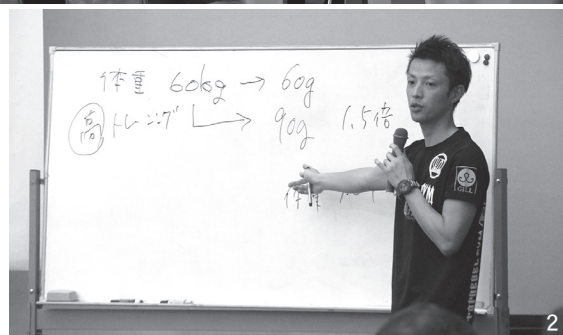 体重 60kg → 60g
高 トレーニング → 90g 1.5倍
体重
GILL
2